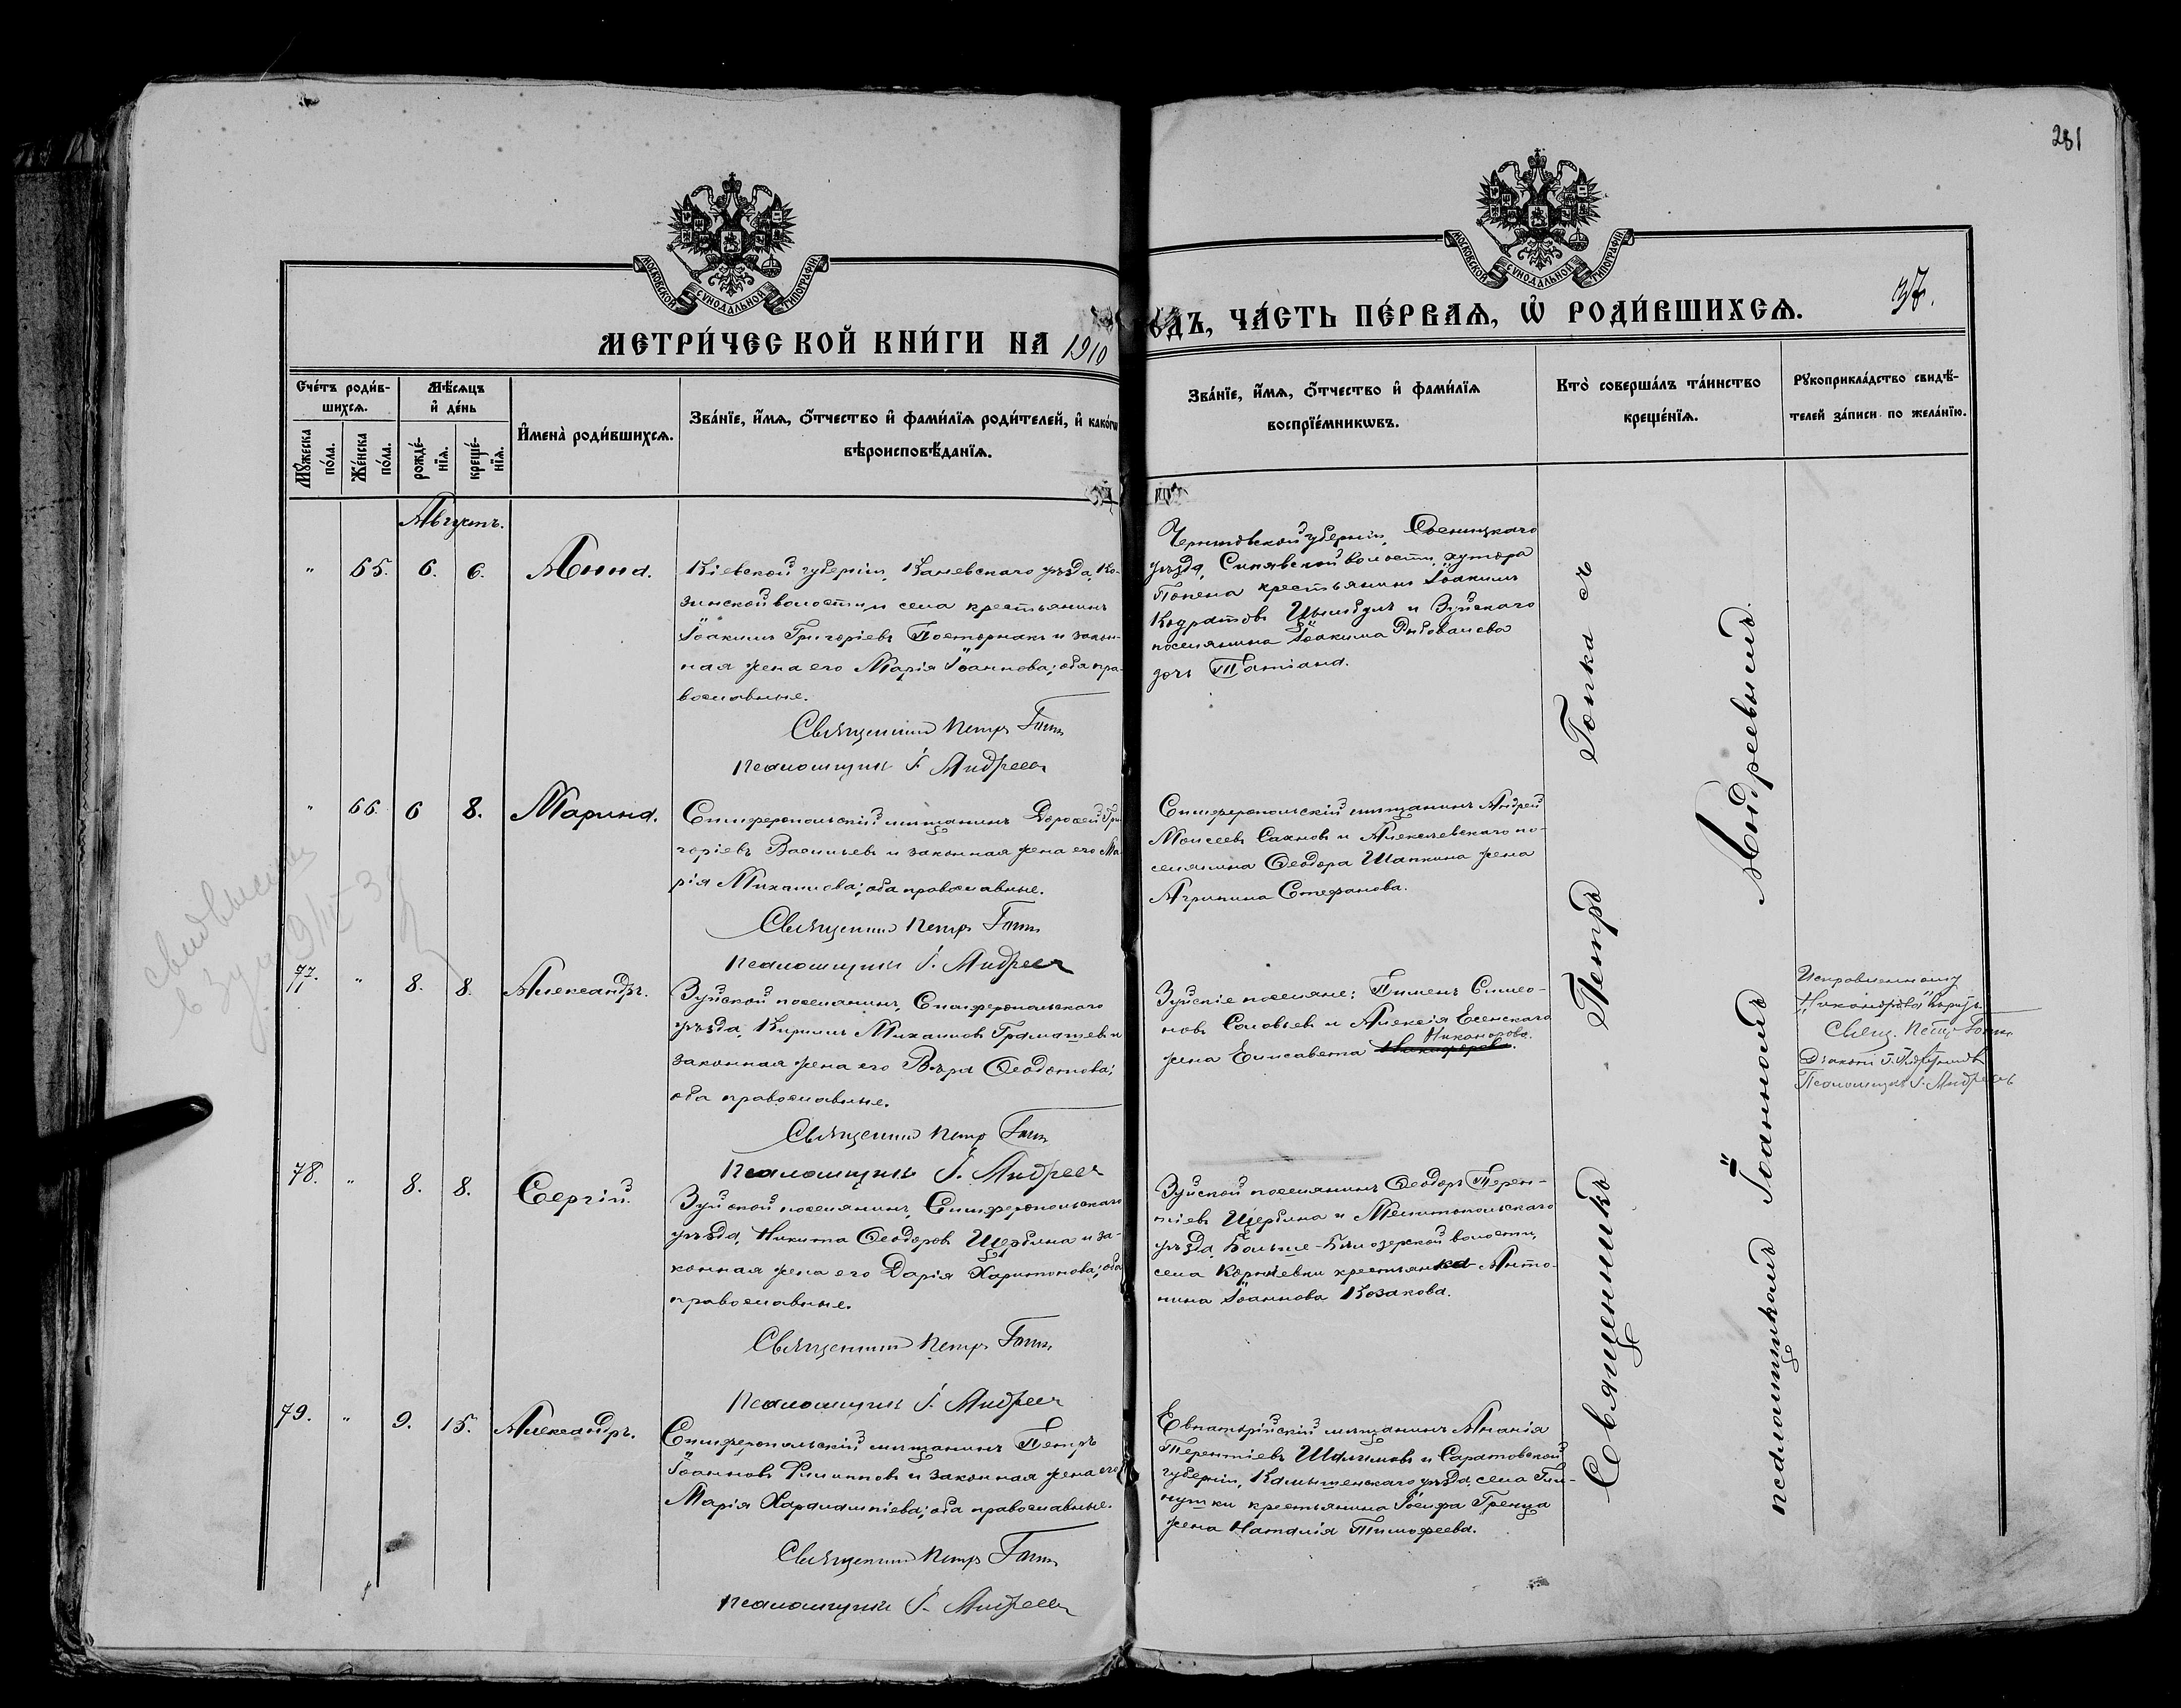 281
37.
МОСКОВСКОЙ СѴНОДАЛЬНОЙ ТИПОГРАФІИ
МОСКОВСКОЙ СѴНОДАЛЬНОЙ ТИПОГРАФІИ
МЕТРИ́ЧЕСКОЙ КНИ́ГИ НА 1910
ГОДЪ, ЧА́СТЬ ПЕ́РВАѦ, Ѡ҆ РОДИ́ВШИХСѦ.
Сче́тъ роди́в-
шихсѧ.
Мѣ́сѧцъ
и҆ де́нь
Мꙋ́жеска
по́ла.
Же́нска
по́ла.
рожде́-
нїѧ.
креще́-
нїѧ.
И҆мена̀ роди́вшихсѧ.
Зва́нїе, и҆́мѧ, ѻ҆́тчество и҆ фами́лїѧ роди́телей, и҆ како́гѡ
вѣроисповѣ́данїѧ.
Зва́нїе, и҆́мѧ, ѻ҆́тчество и҆ фами́лїѧ
воспрїе́мникѡвъ.
Кто̀ соверша́лъ та́инство
креще́нїѧ.
Рꙋкоприкла́дство свидѣ́-
телей за́писи по жела́нїю.
Августъ.
" 65. 6. 6. Анна.
Кіевской губерніи, Каневскаго уѣзда, Ко-
зинской волости и села крестьянинъ
Іоакимъ Григоріевъ Посторнакъ и закон-
ная жена его Марія Іоаннова; оба пра-
вославные.
Священникъ Петръ Гопка
Псаломщикъ І. Андреевъ
Черниговской губерніи, Сосницкаго
уѣзда, Синявской волости, хутора
крестьянинъ Іоакимъ
Кодратовъ и Зуйскаго
поселянина Іоакима
дочь Татіана.
" 66. 6 8. Марина.
Симферопольскій мѣщанинъ Дорофей Гри-
горіевъ Васильевъ и законная жена его Ма-
рія Михаилова; оба православные.
Священникъ Петръ Гопка
Псаломщикъ І. Андреевъ
Симферопольскій мѣщанинъ Андрей
Моисеевъ Сахновъ и Алексѣевскаго по-
селянина Ѳеодора Шапкина жена
Агрипина Стефанова.
77. " 8. 8. Александръ.
Зуйской поселянинъ, Симферопольскаго
уѣзда, Кириллъ Михаиловъ Граматѣевъ и
законная жена его Вѣра Ѳеодотова;
оба православные.
Священникъ Петръ Гопка
Псаломщикъ І. Андреевъ
Зуйскіе поселяне: Пименъ Симео-
новъ Соловьевъ и Алексія Есенскаго
Никонорова.
жена Елисавета
Исправленному
"Никанорова" вѣрить
Свящ. Петръ Гопка
Діаконъ І.
Псаломщикъ І. Андреевъ
78. " 8. 8. Сергій.
Зуйской поселянинъ, Симферопольскаго
уѣзда, Никита Ѳеодоровъ Щербина и за-
конная жена его Дарія Харитонова; оба
православные.
Священникъ Петръ Гопка
Псаломщикъ І. Андреевъ
Зуйской поселянинъ Ѳеодоръ Терен-
тіевъ Щербина и Мелитопольскаго
уѣзда, Больше-Бѣлозерской волости,
села крестьянка Анто-
нина Іоаннова Козакова.
79. " 9. 15. Александръ.
Симферопольскій мѣщанинъ Петръ
Іоанновъ Филипповъ и законная жена его
Марія Харалампіева; оба православные.
Священникъ Петръ Гопка
Псаломщикъ І. Андреевъ
Евпаторійскій мѣщанинъ Ананія
Терентіевъ и Саратовской
губерніи, Камышенскаго уѣзда, села
крестьянина Іосифа
жена Наталія Тимофеева.
Священникъ Петръ Гопка съ
псаломщикомъ Іоанномъ Андреевымъ.